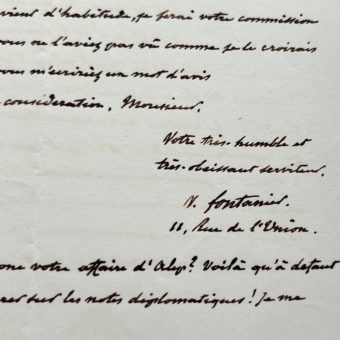 vient d'habitude, je ferai votre commission
vous ne l'aviez pas vû comme je le croirais
vous m'écririez un mot d'avis
considération, Monsieur,
Votre très-humble et
très-obéissant serviteur.
V. fontanier.
11, Rue de l'Union.
votre affaire d'Alep? Voilà qu'à défaut
sur les notes diplomatiques! Je me